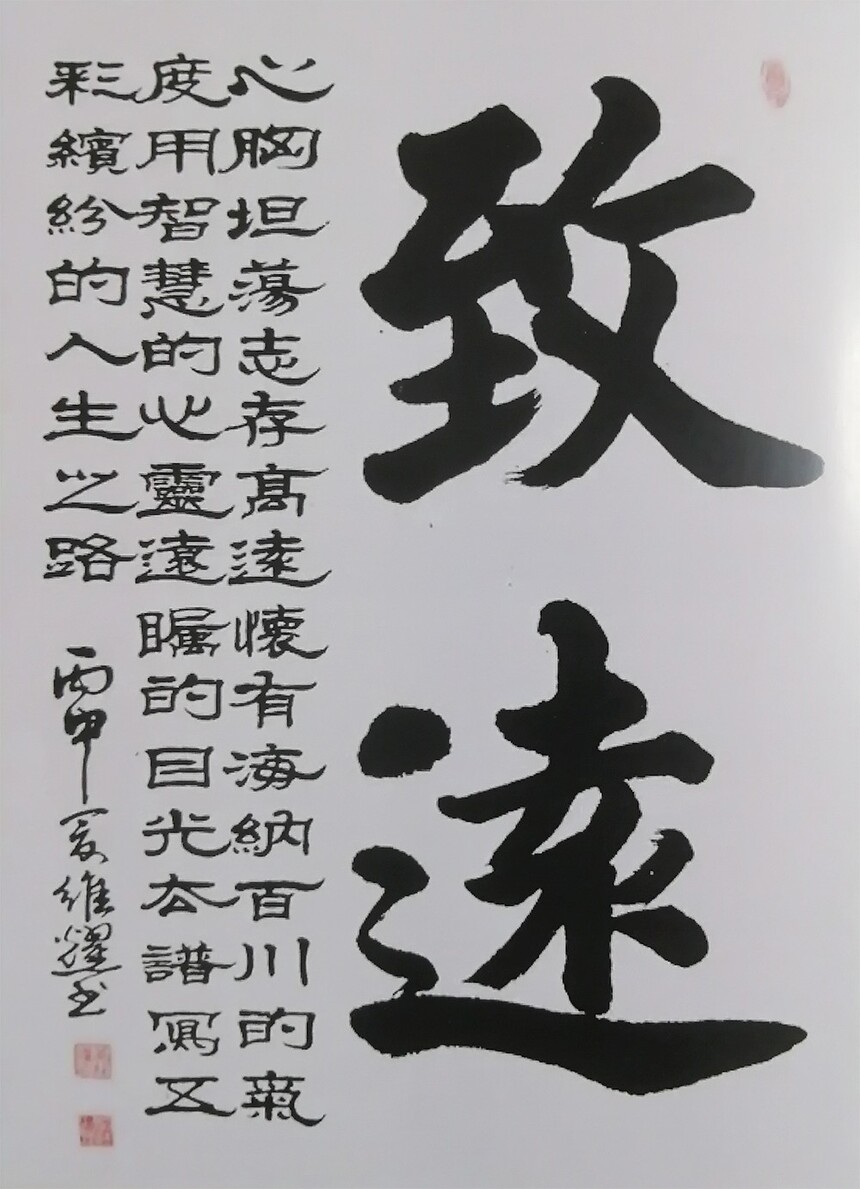 致遠
心胸坦蕩志存高遠懷有海納百川的氣
度用智慧的心靈遠矚的目光去譜寫五
彩繽紛的人生之路 丙申夏維耀书